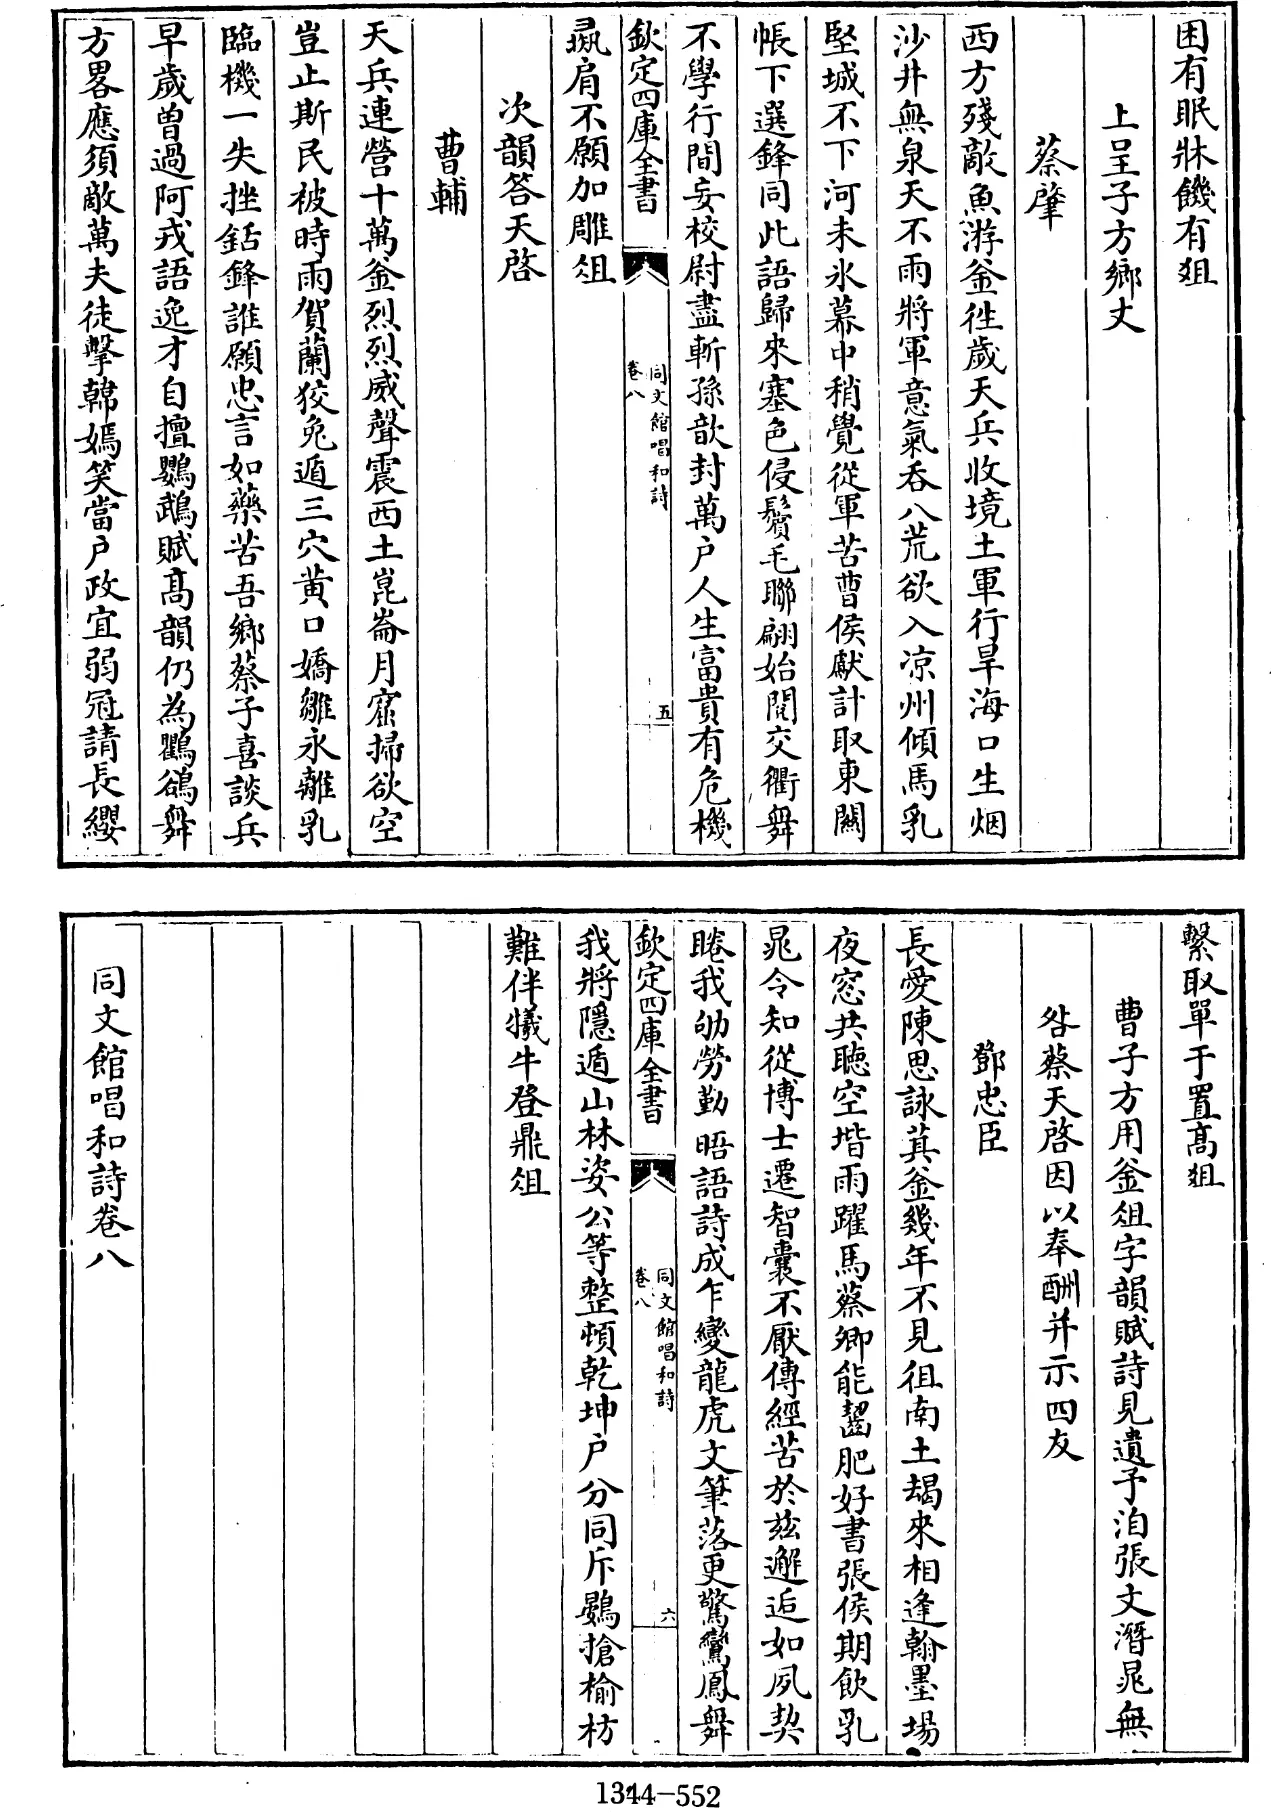 困有眠牀饑有俎
上呈子方鄉丈
蔡肇
西方殘敵魚游釜徃歲天兵收境土軍行旱海口生烟
沙井無泉天不雨將軍意氣吞八荒欲入凉州傾馬乳
堅城不下河未氷幕中稍覺從軍苦曹侯獻計取東關
帳下選鋒同此語歸來塞色侵鬢毛聯翩始閱交衢舞
不學行間妄校尉盡斬孫歆封萬户人生富貴有危機
欽定四庫全書
同文館唱和詩
卷八
五
彘肩不願加雕俎
次韻答天啓
曹輔
天兵連營十萬釜烈烈威聲震西土崑崙月窟掃欲空
豈止斯民被時雨賀蘭狡兔遁三穴黄口嬌雛永離乳
臨機一失挫銛鋒誰願忠言如藥苦吾鄉蔡子喜談兵
早歲曽過阿戎語逸才自擅鸚鵡賦髙韻仍為鸜鵒舞
方畧應須敵萬夫徒擊韓嫣笑當户政宜弱冠請長纓
繫取單于置髙俎
曹子方用釜俎字韻賦詩見遺予洎張文潛晁無
咎蔡天啓因以奉酬并示四友
鄧忠臣
長愛陳思詠萁釜幾年不見徂南土朅來相逢翰墨場
夜窓共聴空堦雨躍馬蔡卿能齧肥好書張侯期飲乳
晁令知從博士遷智囊不厭傳經苦於兹邂逅如夙契
睠我劬勞勤晤語詩成乍變龍虎文筆落更驚鸞鳳舞
欽定四庫全書
同文館唱和詩
卷八
六
我將隱遁山林姿公等整頓乾坤户分同斥鷃搶榆枋
難伴犧牛登鼎俎
同文館唱和詩卷八
1344-552